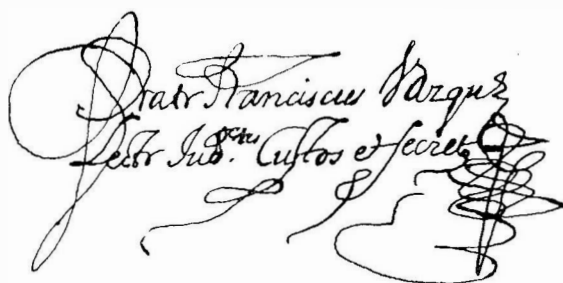 Fratr Franciscus Vazquez
Lectr Jub. Custos et Secret